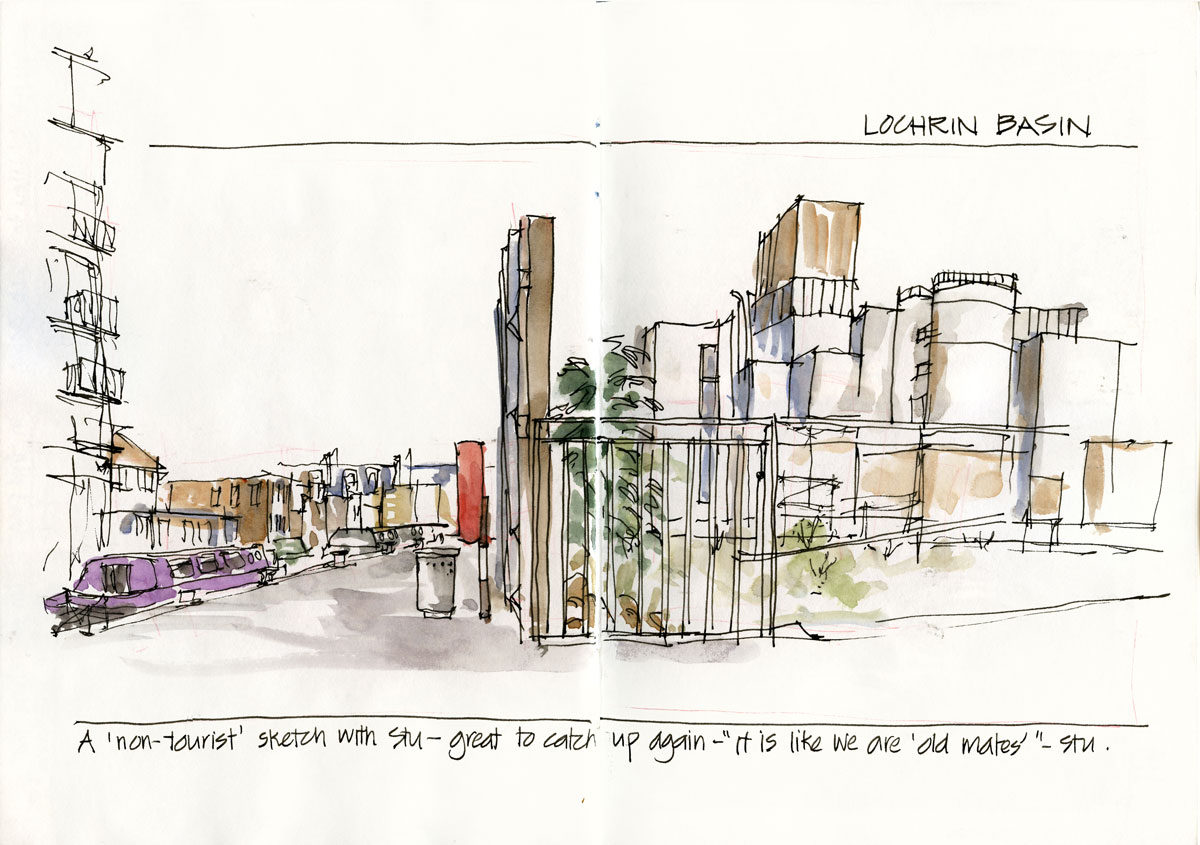 LOCHRIN BASIN
A 'non-tourist' sketch with Stu – great to catch up again – "it is like we are 'old mates' " – Stu.